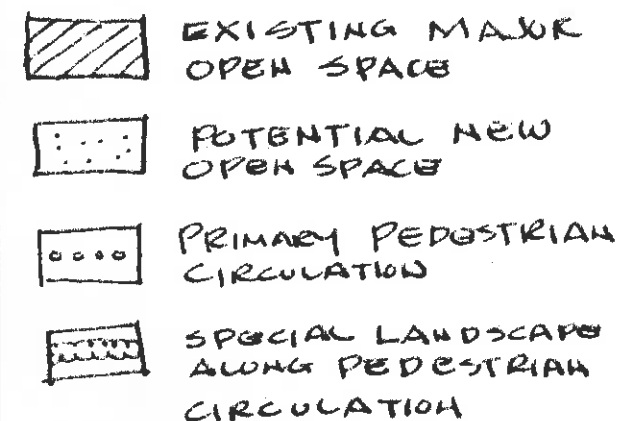 EXISTING MAJOR
OPEN SPACE
POTENTIAL NEW
OPEN SPACE
PRIMARY PEDESTRIAN
CIRCULATION
SPECIAL LANDSCAPE
ALONG PEDESTRIAN
CIRCULATION